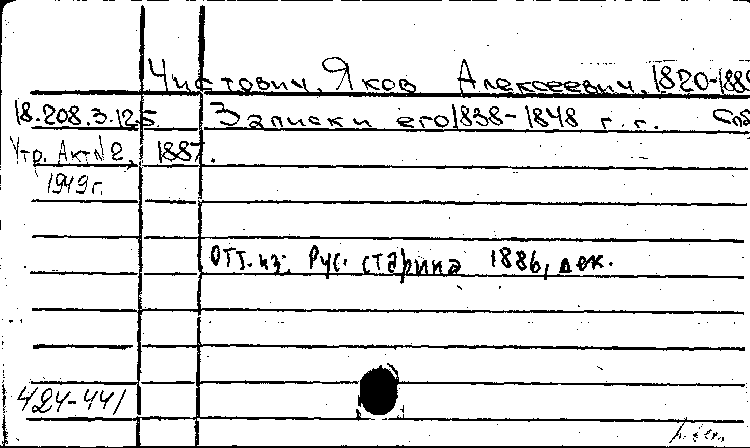 Чистович, Яков Алексеевич, 1820-188
18.208.3.125 Записки его 1838-1848 г.г. Спб
Утр. Акт №2, 1887.
1949 г.
Отт. из: Рус. старина 1886, дек.
424-441